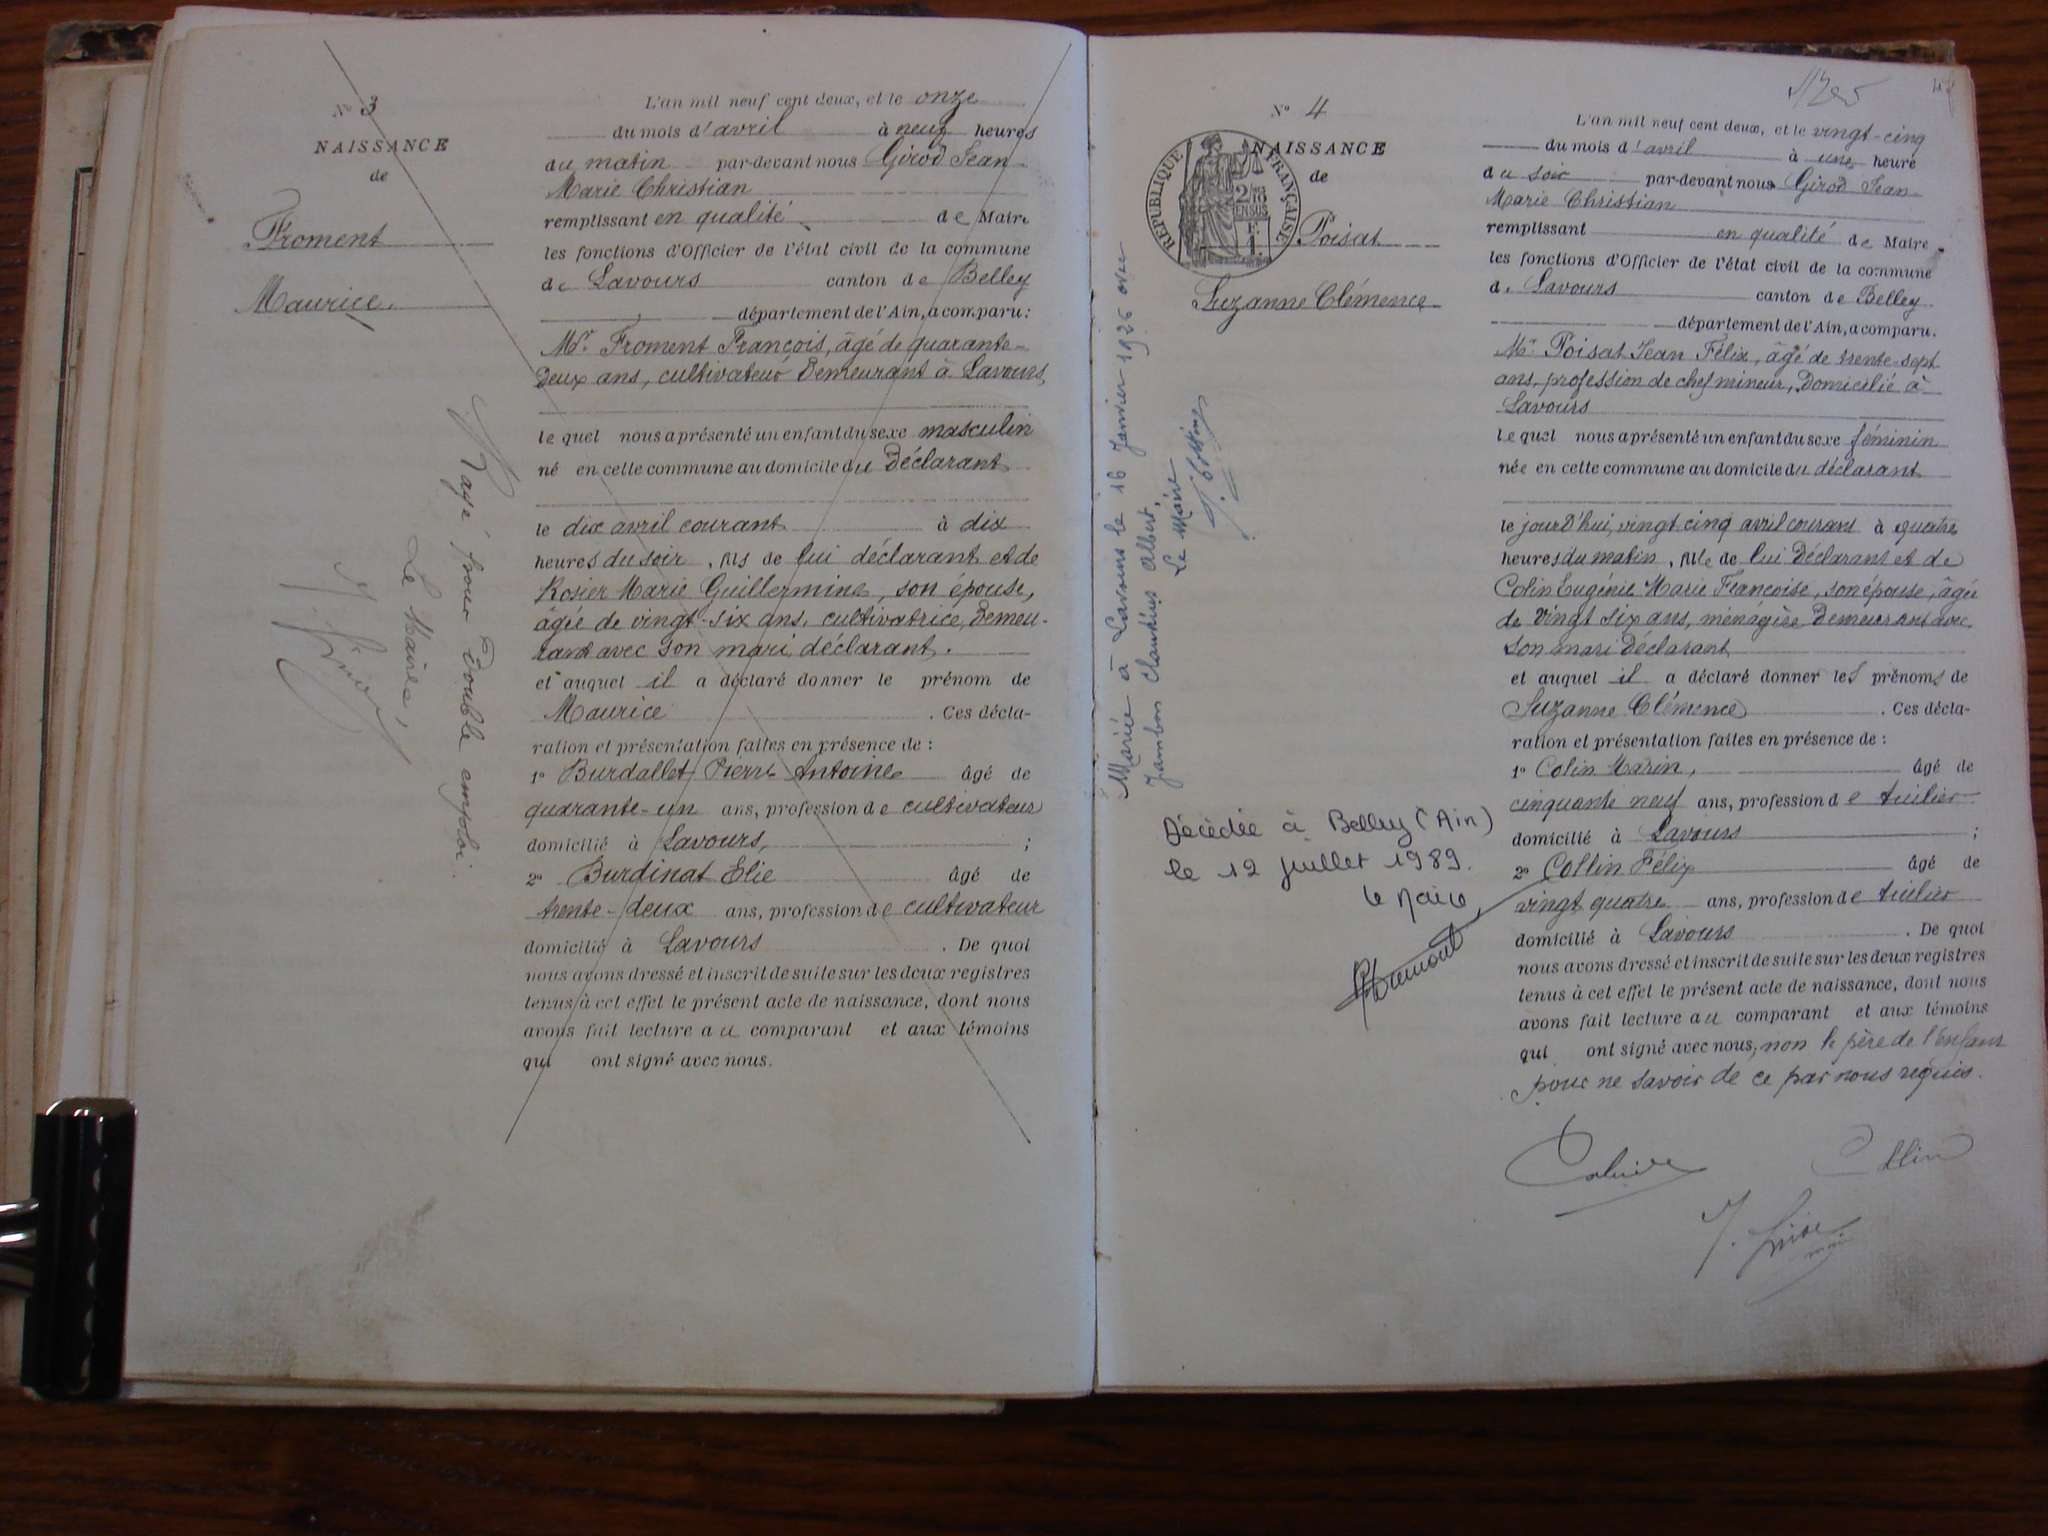 N° 3
NAISSANCE
de
Froment
Maurice.
Rayé pour double emploi.
Le Maire,
L'an mil neuf cent deux, et le onze
du mois d'avril à neuf heures
du matin par-devant nous Girod Jean
Marie Christian
remplissant en qualité de Maire
les fonctions d'Officier de l'état civil de la commune
de Lavours canton de Belley
département de l'Ain, a comparu:
Mr. Froment François, âgé de quarante-
deux ans, cultivateur demeurant à Lavours,
lequel nous a présenté un enfant du sexe masculin
né en cette commune au domicile du déclarant
le dix avril courant à dix
heures du soir, fils de lui déclarant et de
Rosier Marie Guillermine, son épouse,
âgée de vingt-six ans, cultivatrice, demeu-
rant avec son mari déclarant.
et auquel il a déclaré donner le prénom de
Maurice. Ces décla-
ration et présentation faites en présence de :
1° Burdallet Pierre Antoine âgé de
quarante-un ans, profession de cultivateur
domicilié à Lavours, ;
2° Burdinat Elie âgé de
trente-deux ans, profession de cultivateur
domicilié à Lavours. De quoi
nous avons dressé et inscrit de suite sur les deux registres
tenus à cet effet le présent acte de naissance, dont nous
avons fait lecture au comparant et aux témoins
qui ont signé avec nous.
N° 4
NAISSANCE
de
RÉPUBLIQUE FRANÇAISE
Poisat
Suzanne Clémence
Mariée à Lavours le 16 Janvier 1926 avec
Jambon Claudius Albert,
Le Maire
Décédée à Belley (Ain)
le 12 juillet 1989.
le Maire,
L'an mil neuf cent deux, et le vingt-cinq
du mois d'avril à une heure
du soir par-devant nous Girod Jean
Marie Christian
remplissant en qualité de Maire
les fonctions d'Officier de l'état civil de la commune
de Lavours canton de Belley
département de l'Ain, a comparu.
Mr Poisat Jean Félix, âgé de trente-sept
ans, profession de chef mineur, domicilié à
Lavours
lequel nous a présenté un enfant du sexe féminin
née en cette commune au domicile du déclarant
le jourd'hui, vingt cinq avril courant à quatre
heures du matin, fille de lui déclarant et de
Colin Eugénie Marie Françoise, son épouse, âgée
de vingt six ans, ménagère demeurant avec
son mari déclarant
et auquel il a déclaré donner les prénoms de
Suzanne Clémence. Ces décla-
ration et présentation faites en présence de :
1° Colin Marin, âgé de
cinquante neuf ans, profession de tuilier
domicilié à Lavours ;
2° Collin Félix âgé de
vingt quatre ans, profession de tuilier
domicilié à Lavours. De quoi
nous avons dressé et inscrit de suite sur les deux registres
tenus à cet effet le présent acte de naissance, dont nous
avons fait lecture au comparant et aux témoins
qui ont signé avec nous, non le père de l'enfant
pour ne savoir de ce par nous requis.
Collin